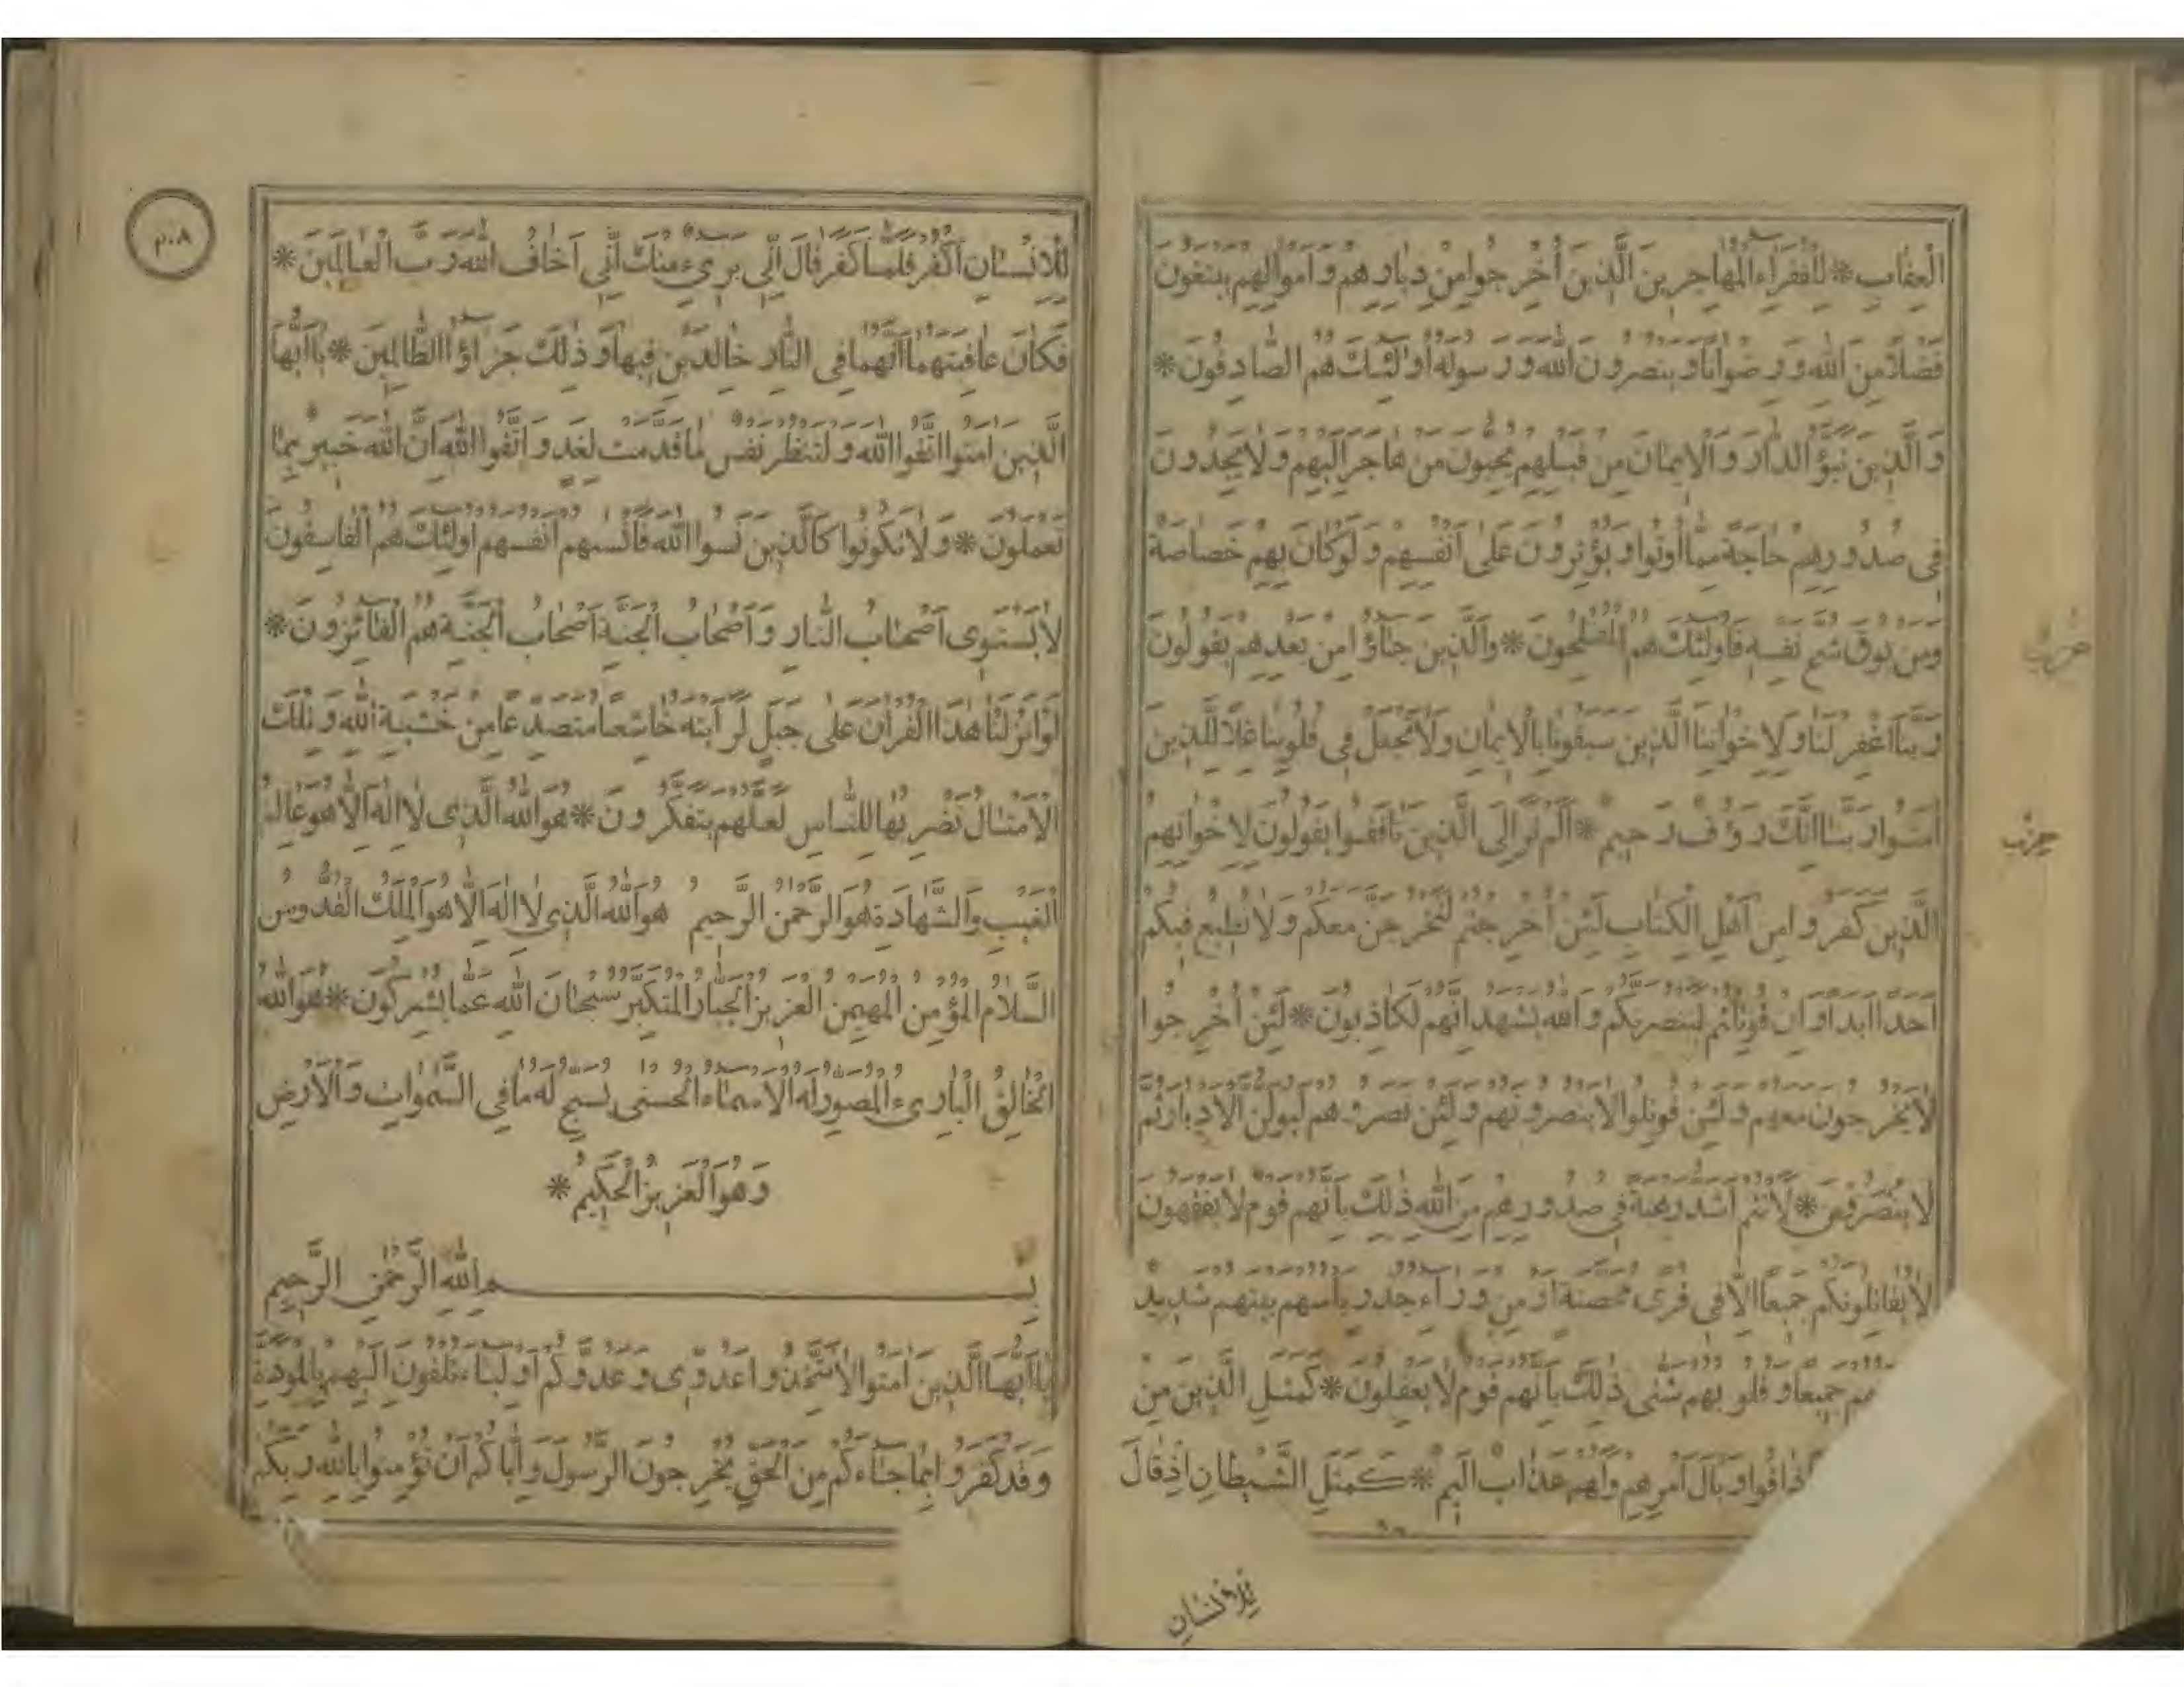 الْعِقَابِ * لِلْفُقَرَاءِ الْمُهَاجِرِينَ الَّذِينَ أُخْرِجُوا مِنْ دِيَارِهِمْ وَأَمْوَالِهِمْ يَبْتَغُونَ
فَضْلًا مِنَ اللَّهِ وَرِضْوَانًا وَيَنْصُرُونَ اللَّهَ وَرَسُولَهُ أُولَٰئِكَ هُمُ الصَّادِقُونَ *
وَالَّذِينَ تَبَوَّؤُ الدَّارَ وَالْإِيمَانَ مِنْ قَبْلِهِمْ يُحِبُّونَ مَنْ هَاجَرَ إِلَيْهِمْ وَلَا يَجِدُونَ
فِي صُدُورِهِمْ حَاجَةً مِمَّا أُوتُوا وَيُؤْثِرُونَ عَلَىٰ أَنْفُسِهِمْ وَلَوْ كَانَ بِهِمْ خَصَاصَةٌ
وَمَنْ يُوقَ شُحَّ نَفْسِهِ فَأُولَٰئِكَ هُمُ الْمُفْلِحُونَ * وَالَّذِينَ جَاؤُا مِنْ بَعْدِهِمْ يَقُولُونَ
رَبَّنَا اغْفِرْ لَنَا وَلِإِخْوَانِنَا الَّذِينَ سَبَقُونَا بِالْإِيمَانِ وَلَا تَجْعَلْ فِي قُلُوبِنَا غِلًّا لِلَّذِينَ
آمَنُوا رَبَّنَا إِنَّكَ رَؤُفٌ رَحِيمٌ * أَلَمْ تَرَ إِلَى الَّذِينَ نَافَقُوا يَقُولُونَ لِإِخْوَانِهِمُ
حزب
الَّذِينَ كَفَرُوا مِنْ أَهْلِ الْكِتَابِ لَئِنْ أُخْرِجْتُمْ لَنَخْرُجَنَّ مَعَكُمْ وَلَا نُطِيعُ فِيكُمْ
أَحَدًا أَبَدًا وَإِنْ قُوتِلْتُمْ لَنَنْصُرَنَّكُمْ وَاللَّهُ يَشْهَدُ إِنَّهُمْ لَكَاذِبُونَ * لَئِنْ أُخْرِجُوا
لَا يَخْرُجُونَ مَعَهُمْ وَلَئِنْ قُوتِلُوا لَا يَنْصُرُونَهُمْ وَلَئِنْ نَصَرُوهُمْ لَيُوَلُّنَّ الْأَدْبَارَ ثُمَّ
لَا يُنْصَرُونَ * لَأَنْتُمْ أَشَدُّ رَهْبَةً فِي صُدُورِهِمْ مِنَ اللَّهِ ذَٰلِكَ بِأَنَّهُمْ قَوْمٌ لَا يَفْقَهُونَ
لَا يُقَاتِلُونَكُمْ جَمِيعًا إِلَّا فِي قُرًى مُحَصَّنَةٍ أَوْ مِنْ وَرَاءِ جُدُرٍ بَأْسُهُمْ بَيْنَهُمْ شَدِيدٌ
جَمِيعًا وَقُلُوبُهُمْ شَتَّىٰ ذَٰلِكَ بِأَنَّهُمْ قَوْمٌ لَا يَعْقِلُونَ * كَمَثَلِ الَّذِينَ مِنْ
ذَاقُوا وَبَالَ أَمْرِهِمْ وَلَهُمْ عَذَابٌ أَلِيمٌ * كَمَثَلِ الشَّيْطَانِ إِذْ قَالَ
٢٠٨
لِلْإِنْسَانِ اكْفُرْ فَلَمَّا كَفَرَ قَالَ إِنِّي بَرِيءٌ مِنْكَ إِنِّي أَخَافُ اللَّهَ رَبَّ الْعَالَمِينَ *
فَكَانَ عَاقِبَتَهُمَا أَنَّهُمَا فِي النَّارِ خَالِدَيْنِ فِيهَا وَذَٰلِكَ جَزَاؤُا الظَّالِمِينَ * يَا أَيُّهَا
الَّذِينَ آمَنُوا اتَّقُوا اللَّهَ وَلْتَنْظُرْ نَفْسٌ مَا قَدَّمَتْ لِغَدٍ وَاتَّقُوا اللَّهَ إِنَّ اللَّهَ خَبِيرٌ بِمَا
تَعْمَلُونَ * وَلَا تَكُونُوا كَالَّذِينَ نَسُوا اللَّهَ فَأَنْسٰيهُمْ أَنْفُسَهُمْ أُولَٰئِكَ هُمُ الْفَاسِقُونَ
لَا يَسْتَوِي أَصْحَابُ النَّارِ وَأَصْحَابُ الْجَنَّةِ أَصْحَابُ الْجَنَّةِ هُمُ الْفَائِزُونَ *
لَوْ أَنْزَلْنَا هَٰذَا الْقُرْآنَ عَلَىٰ جَبَلٍ لَرَأَيْتَهُ خَاشِعًا مُتَصَدِّعًا مِنْ خَشْيَةِ اللَّهِ وَتِلْكَ
الْأَمْثَالُ نَضْرِبُهَا لِلنَّاسِ لَعَلَّهُمْ يَتَفَكَّرُونَ * هُوَ اللَّهُ الَّذِي لَا إِلَٰهَ إِلَّا هُوَ عَالِمُ
الْغَيْبِ وَالشَّهَادَةِ هُوَ الرَّحْمَٰنُ الرَّحِيمُ هُوَ اللَّهُ الَّذِي لَا إِلَٰهَ إِلَّا هُوَ الْمَلِكُ الْقُدُّوسُ
السَّلَامُ الْمُؤْمِنُ الْمُهَيْمِنُ الْعَزِيزُ الْجَبَّارُ الْمُتَكَبِّرُ سُبْحَانَ اللَّهِ عَمَّا يُشْرِكُونَ * هُوَ اللَّهُ
الْخَالِقُ الْبَارِيءُ الْمُصَوِّرُ لَهُ الْأَسْمَاءُ الْحُسْنَىٰ يُسَبِّحُ لَهُ مَا فِي السَّمٰوَاتِ وَالْأَرْضِ
وَهُوَ الْعَزِيزُ الْحَكِيمُ *
بِسْمِ اللَّهِ الرَّحْمَٰنِ الرَّحِيمِ
يَا أَيُّهَا الَّذِينَ آمَنُوا لَا تَتَّخِذُوا عَدُوِّي وَعَدُوَّكُمْ أَوْلِيَاءَ تُلْقُونَ إِلَيْهِمْ بِالْمَوَدَّةِ
وَقَدْ كَفَرُوا بِمَا جَاءَكُمْ مِنَ الْحَقِّ يُخْرِجُونَ الرَّسُولَ وَإِيَّاكُمْ أَنْ تُؤْمِنُوا بِاللَّهِ رَبِّكُمْ